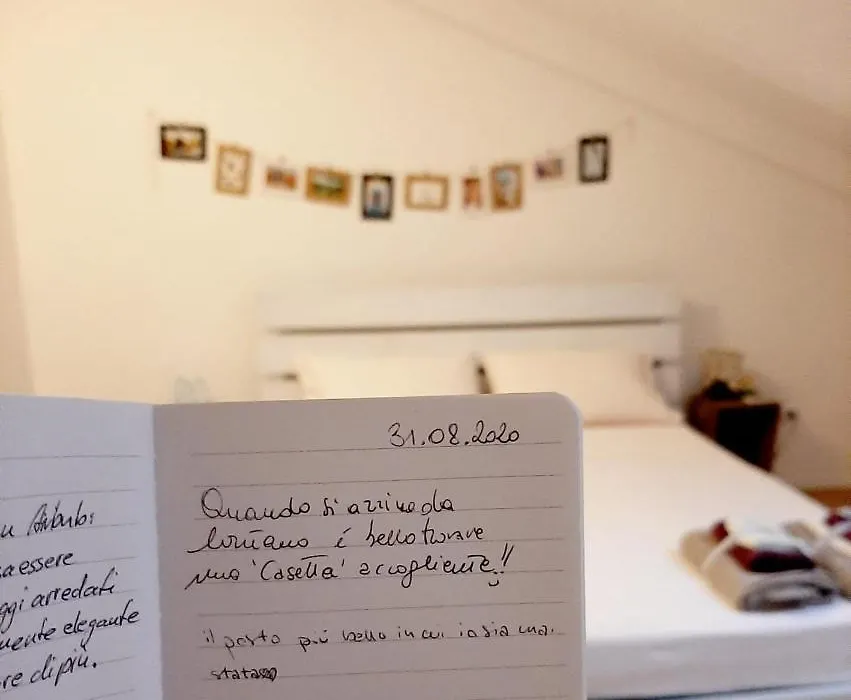 essere
arredati
elegante
di più.
31.08.2020
Quando si arriva da
lontano è bello trovare
una 'Casetta' accogliente!!
il posto più bello in cui io sia mai
stata